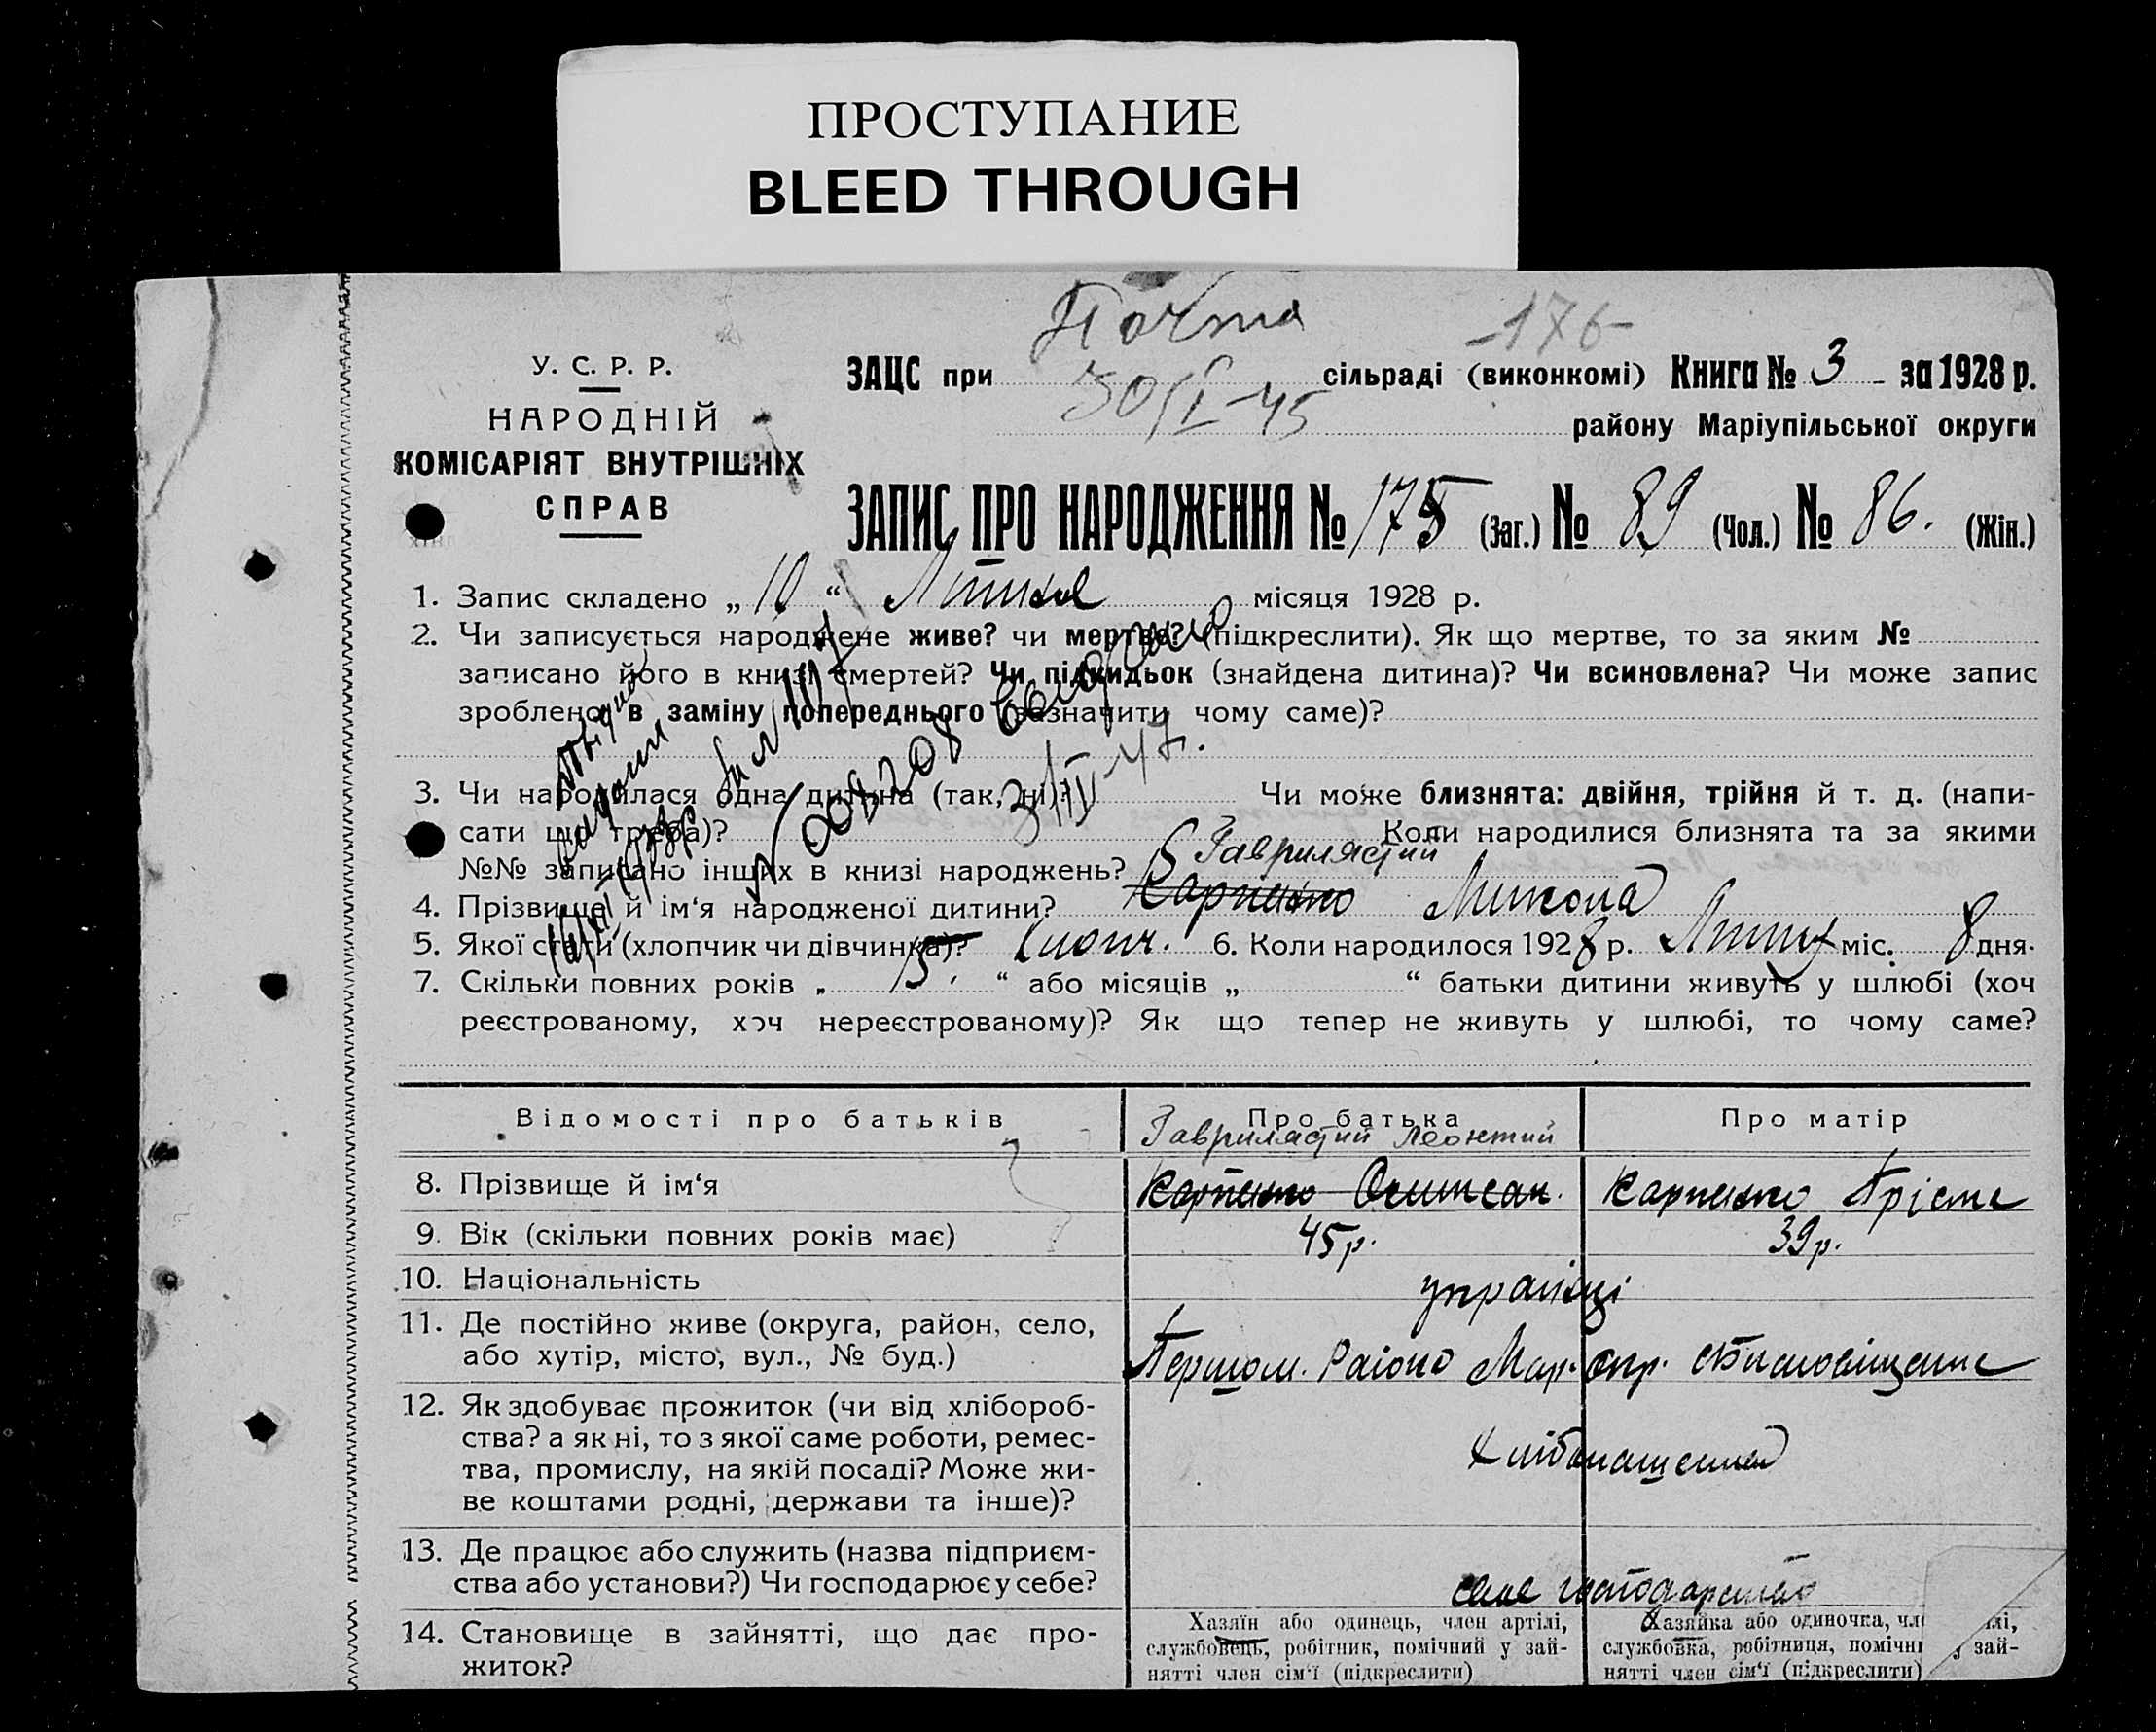 ПРОСТУПАНИЕ
BLEED THROUGH
Почта
-176-
У. С. Р. Р.
ЗАЦС при 30/I-45 сільраді (виконкомі) Книга № 3 за 1928 р.
НАРОДНІЙ
району Маріупільської округи
КОМІСАРІЯТ ВНУТРІШНІХ
СПРАВ
ЗАПИС ПРО НАРОДЖЕННЯ № 175 (Заг.) № 89 (Чол.) № 86. (Жін.)
1. Запис складено „ 10 “ Липня місяця 1928 р.
2. Чи записується народжене живе? чи мертве? (підкреслити). Як що мертве, то за яким №
записано його в книзі смертей? Чи підкидьок (знайдена дитина)? Чи всиновлена? Чи може запис
зроблено в заміну попереднього (зазначити чому саме)?
3/IV 47.
3. Чи народилася одна дитина (так, ні)? Чи може близнята: двійня, трійня й т. д. (напи-
сати що треба)? Коли народилися близнята та за якими
№№ записано інших в книзі народжень? Гаврилястий
4. Прізвище й ім‘я народженої дитини? Карпенко Микола
5. Якої стати (хлопчик чи дівчинка)? Хлопч. 6. Коли народилось 1928 р. Липня міс. 8 дня.
7. Скільки повних років „ 15. “ або місяців „ “ батьки дитини живуть у шлюбі (хоч
реєстрованому, хоч нереєстрованому)? Як що тепер не живуть у шлюбі, то чому саме?
Відомості про батьків Про батька Про матір
Гаврилястий Леонтий
8. Прізвище й ім‘я Карпенко Карпенко
9. Вік (скільки повних років має) 45 р. 39 р.
10. Національність українці
11. Де постійно живе (округа, район, село,
або хутір, місто, вул., № буд.) Першом. Району Мар. окр.
12. Як здобуває прожиток (чи від хлібороб-
ства? а як ні, то з якої саме роботи, ремес-
тва, промислу, на якій посаді? Може жи-
ве коштами родні, держави та інше)? Хлібопашеством
13. Де працює або служить (назва підприєм-
ства або установи?) Чи господарює у себе? господарство
14. Становище в зайнятті, що дає про-
житок?
Хазяїн або одинець, член артілі,
службовець, робітник, помічний у зай-
нятті член сім‘ї (підкреслити)
Хазяйка або одиночка, чл лі,
службовка, робітниця, помічні у зай-
нятті член сім‘ї (підкреслити)